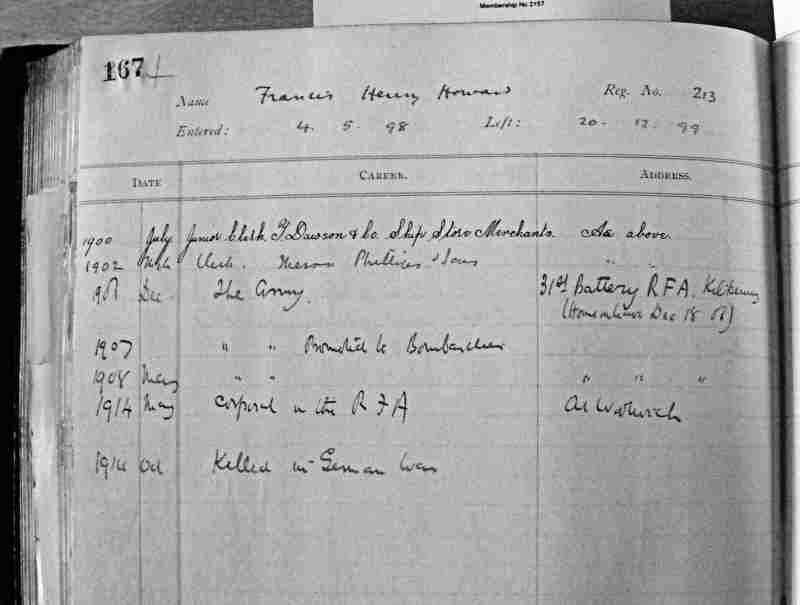 Membership No 2157
167
Name Francis Henry Howard Reg. No. 213
Entered: 4. 5. 98 Left: 20. 12. 99
DATE CAREER. ADDRESS.
1900 July Junior Clerk T. Dawson & Co. Ship Store Merchants. As above.
1902 Clerk. Messrs Phillips & Sons " "
Dec The Army. 31st Battery R.F.A. Kilkenny
Dec 18
1907 " " Promoted to Bombardier
1908 May " " " " "
1914 May Corporal in the R F A At Woolwich
1914 Oct Killed in German War